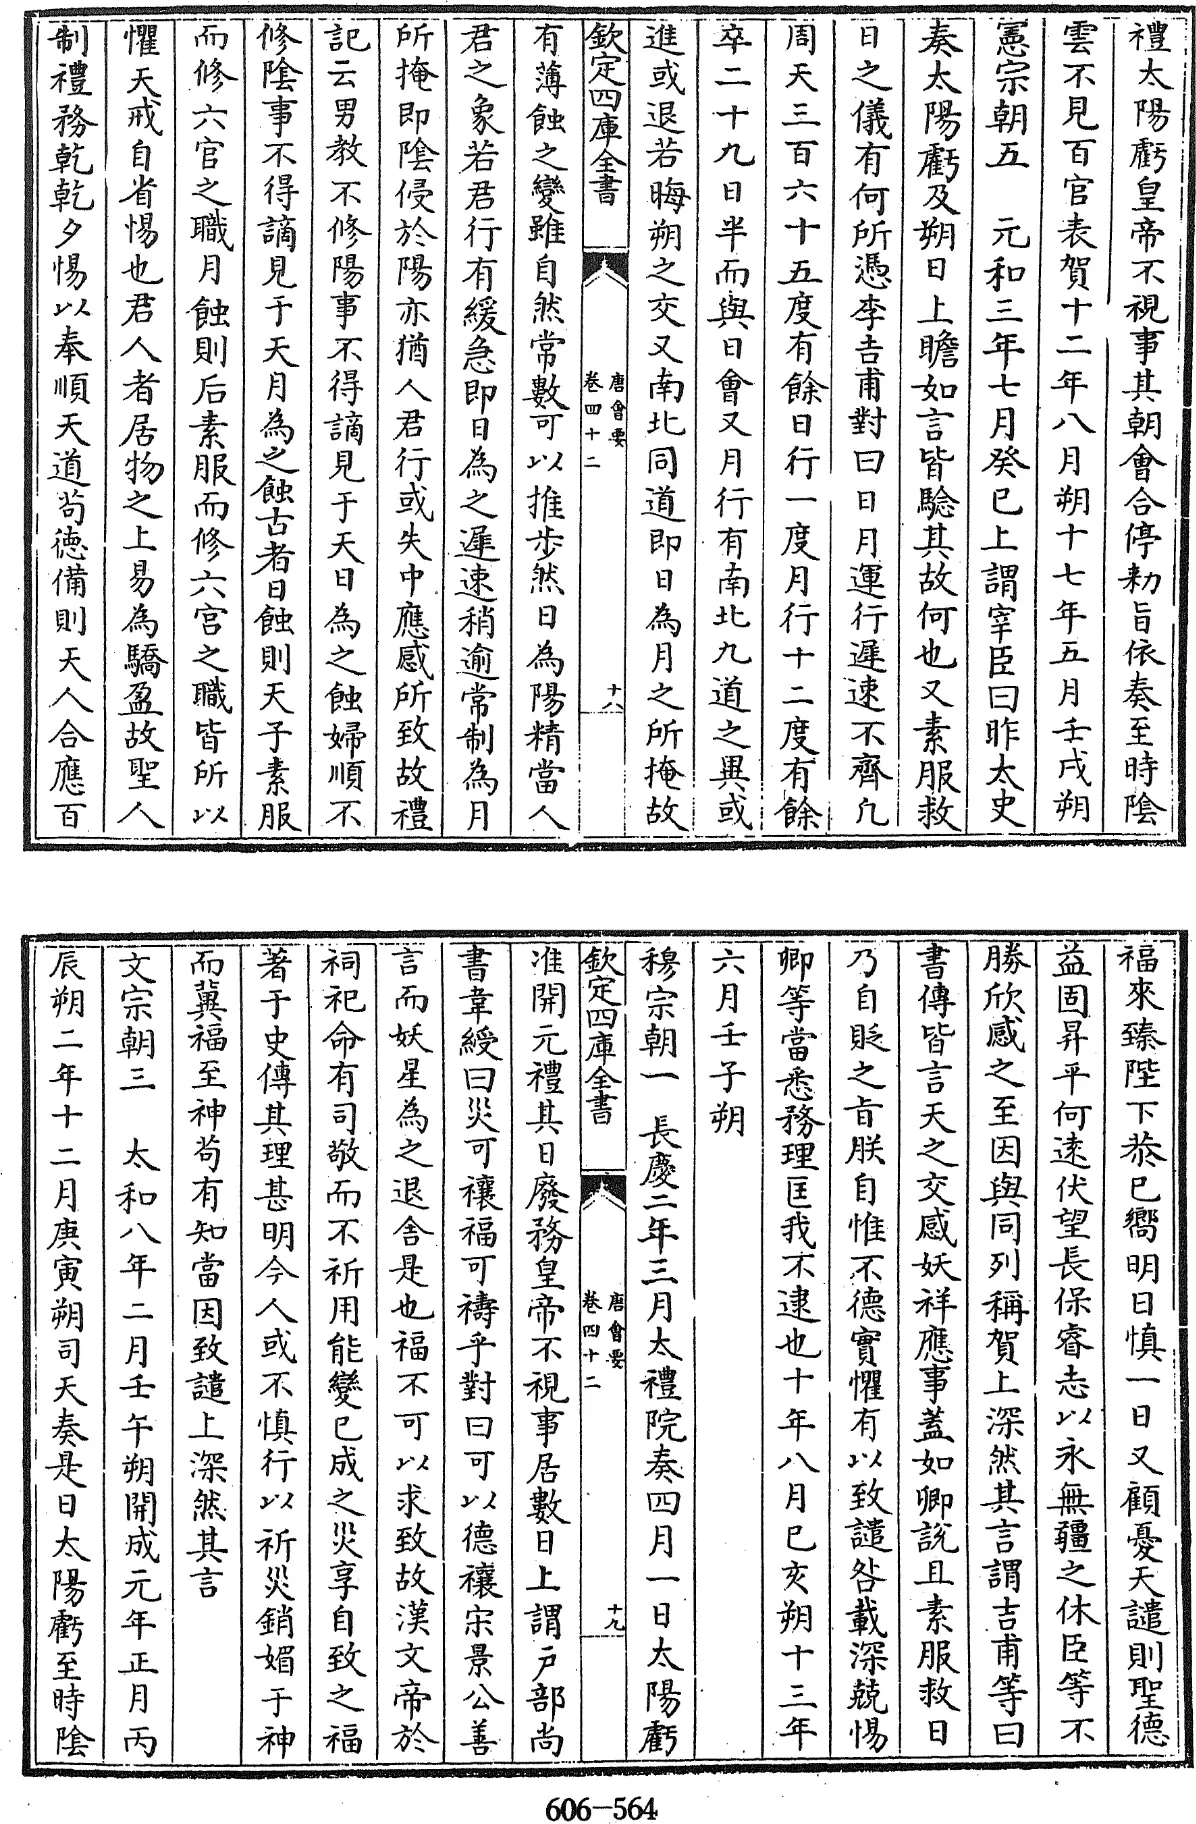 禮太陽虧皇帝不視事其朝會合停勅旨依奏至時陰
雲不見百官表賀十二年八月朔十七年五月壬戌朔
憲宗朝五　元和三年七月癸巳上謂宰臣曰昨太史
奏太陽虧及朔日上瞻如言皆驗其故何也又素服救
日之儀有何所憑李吉甫對曰日月運行遲速不齊凡
周天三百六十五度有餘日行一度月行十二度有餘
卒二十九日半而與日會又月行有南北九道之異或
進或退若晦朔之交又南北同道即日為月之所掩故
欽定四庫全書
唐會要
卷四十二
十八
有薄蝕之變雖自然常數可以推步然日為陽精當人
君之象若君行有緩急即日為之遲速稍逾常制為月
所掩即陰侵於陽亦猶人君行或失中應感所致故禮
記云男教不修陽事不得謫見于天日為之蝕婦順不
修陰事不得謫見于天月為之蝕古者日蝕則天子素服
而修六官之職月蝕則后素服而修六宮之職皆所以
懼天戒自省惕也君人者居物之上易為驕盈故聖人
制禮務乾乾夕惕以奉順天道茍德備則天人合應百
福來臻陛下恭已嚮明日慎一日又顧憂天譴則聖德
益固昇平何遠伏望長保睿志以永無疆之休臣等不
勝欣感之至因與同列稱賀上深然其言謂吉甫等曰
書傳皆言天之交感妖祥應事蓋如卿說且素服救日
乃自貶之旨朕自惟不德實懼有以致譴咎載深兢惕
卿等當悉務理匡我不逮也十年八月己亥朔十三年
六月壬子朔
穆宗朝一　長慶二年三月太禮院奏四月一日太陽虧
欽定四庫全書
唐會要
卷四十二
十九
準開元禮其日廢務皇帝不視事居數日上謂戶部尚
書韋綬曰災可禳福可禱乎對曰可以德禳宋景公善
言而妖星為之退舍是也福不可以求致故漢文帝於
祠祀命有司敬而不祈用能變已成之災享自致之福
著于史傳其理甚明今人或不慎行以祈災銷媚于神
而冀福至神茍有知當因致譴上深然其言
文宗朝三　太和八年二月壬午朔開成元年正月丙
辰朔二年十二月庚寅朔司天奏是日太陽虧至時陰
606-564